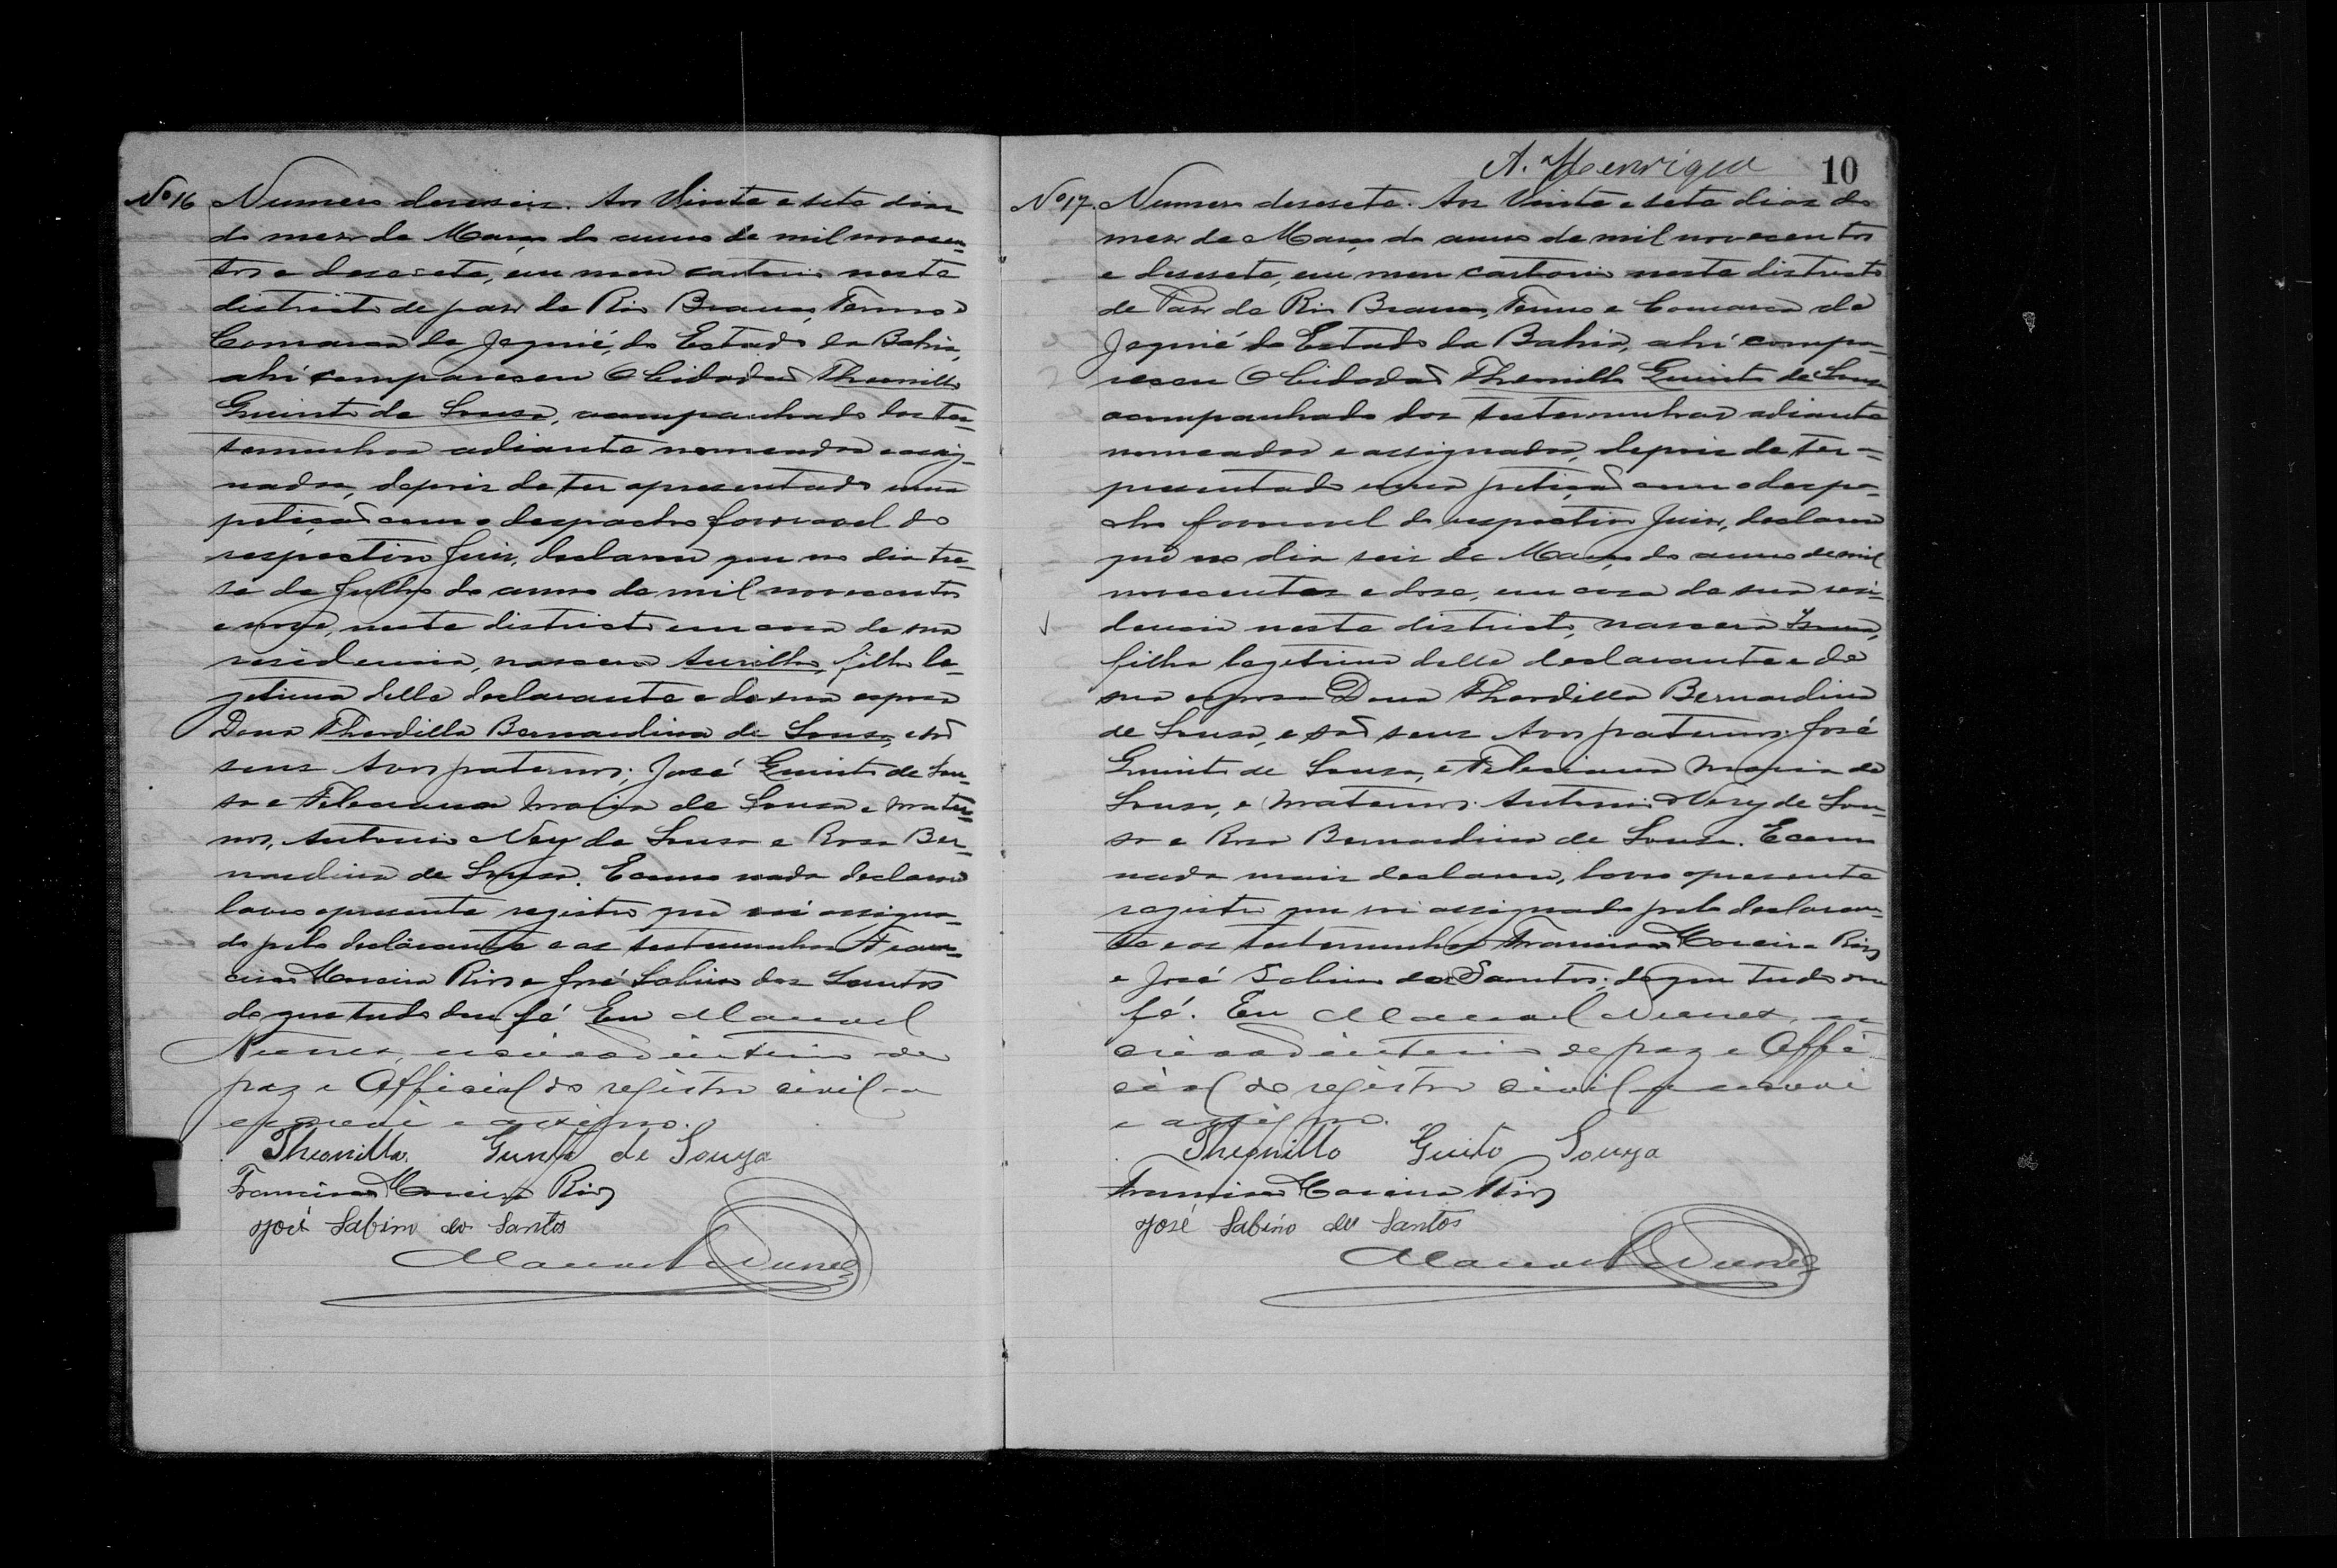 Nº 16 Numero desesseis. Aos Vinte e sete dias
do mez de Março do anno de mil novecen-
tos e desesete, em meu cartorio neste
districto de paz de Rio Branco, Termo e
Comarca de Jequié, do Estado da Bahia,
ahi compareseu O Cidadão Theonillo
Guinto de Sousa, acompanhado das tes-
temunhas adiante nomeadas e assig-
nadas, depois de ter apresentado uma
petição com o despacho favoravel do
respectivo Juiz, declarou que no dia tre-
se de Julho do anno de mil novecentos
e nove, neste districto em casa de sua
residencia, nasceu Aurilha, filha le-
getima delle declarante e de sua esposa
Dona Thordilla Bernardina de Sousa, e são
seus Avos paternos; José Guinto de Sou-
sa e Feleciana Maria de Sousa e mater-
nos, Antonio Nery de Sousa e Rosa Ber-
nardina de Sousa. E como nada declarou
lavro o presente registro que vai assigna-
do pelo declarante e as testemunhas Fran-
cisco Moreira Rios e José Sabino dos Santos
do que tudo dou fé Eu Manoel
Nunes, escrivão interino de
paz e Official do registro civil o
escrevi e assigno.
Theonillo Guinto de Souza
Francisco Moreira Rios
José Sabino dos Santos
Manoel Nunes
A. Henrique 10
Nº 17. Numero desesete. Aos Vinte e sete dias do
mez de Março do anno de mil novecentos
e desesete, em meu cartorio neste districto
de Paz de Rio Branco, Termo e Comarca de
Jequié do Estado da Bahia, ahi compa-
reseu O Cidadão Theonillo Guinto de Sousa
acompanhado das testemunhas adiante
nomeadas e assignadas, depois de ter a-
presentado uma petição com o despa-
cho favoravel do respectivo Juiz, declarou
que no dia seis de Março do anno de mil
novecentos e dose, em casa de sua resi-
dencia neste districto, nascera
filha legetima delle declarante e de
sua esposa Dona Thordilla Bernardina
de Sousa, e são seus Avos paternos: José
Guinto de Sousa, e Feleciana Maria de
Sousa, e Maternos: Antonio Nery de Sou-
sa e Rosa Bernardina de Sousa. E como
nada mais declarou, lavro o presente
registro que vai assignado pelo declaran-
te e as testemunhas Francisco Moreira Rios
e José Sabino dos Santos; do que tudo dou
fé. Eu Manoel Nunes, es-
crivão interino de paz e Offi-
cial do registro civil o escrevi
e assigno.
Theonillo Guinto Souza
Francisco Moreira Rios
José Sabino dos Santos
Manoel Nunes